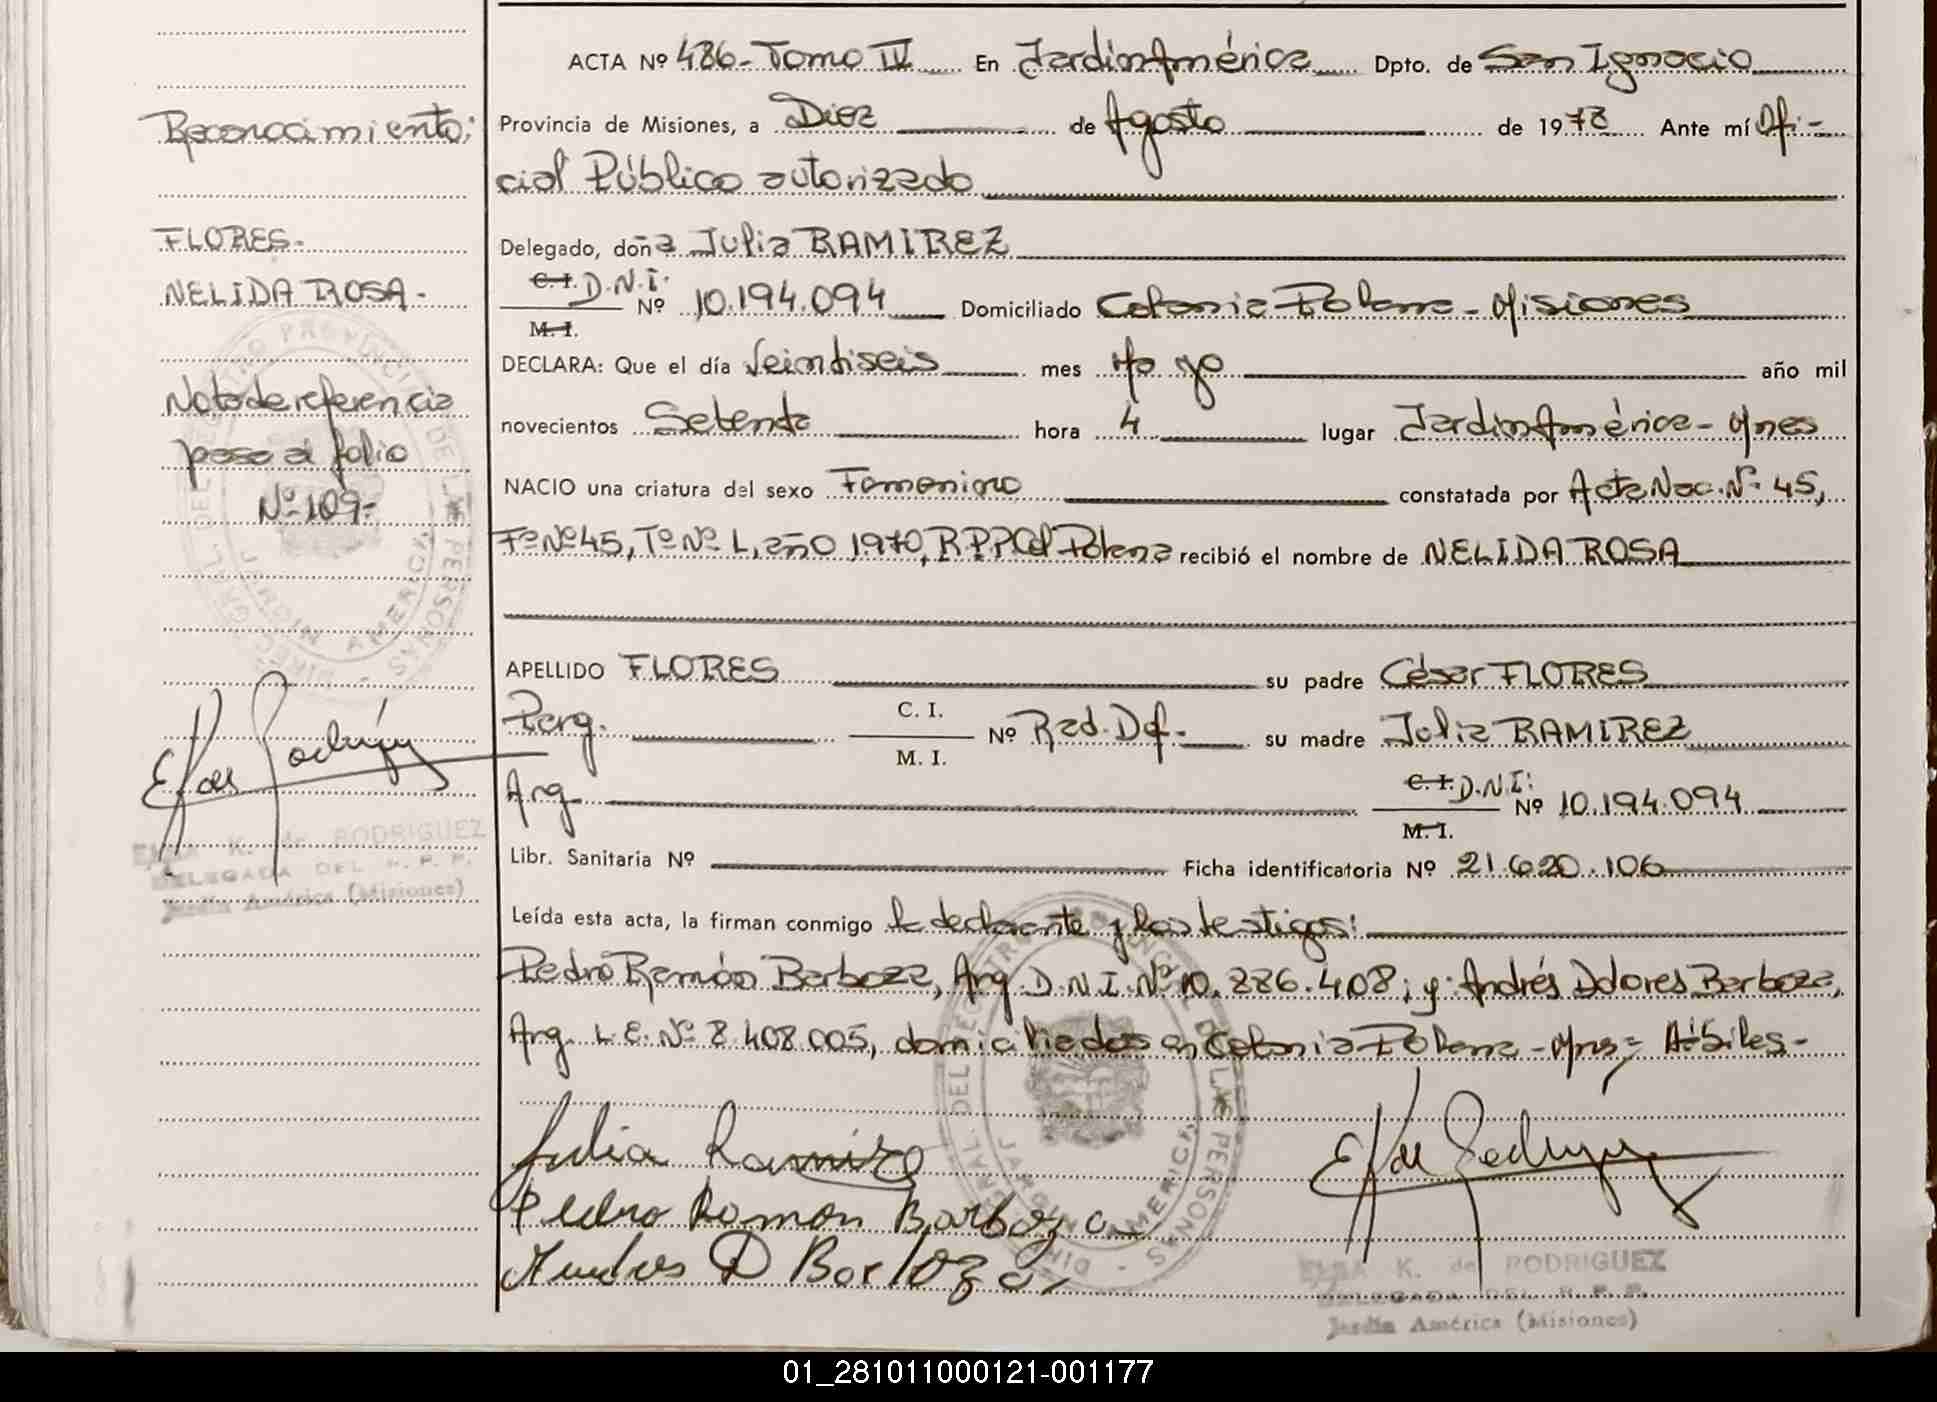 ACTA Nº 486- Tomo IV En Jardin América Dpto. de San Ignacio
Reconocimiento:
Provincia de Misiones, a Diez de Agosto de 1978 Ante mí Ofi-
cial Público autorizado
FLORES.-
Delegado, doña Julia RAMIREZ
NELIDA ROSA-
C.I. D.N.I. Nº 10.194.094 Domiciliado Colonia Polana - Misiones
M.I.
DECLARA: Que el día Veintiseis mes Mayo año mil
Nota de referencia
novecientos Setenta hora 4 lugar Jardin América - Mnes
pasa al folio
NACIO una criatura del sexo Femenino constatada por Acta Nac. Nº 45,
Nº 109-
Fº Nº 45, Tº Nº I, año 1970, R.P.P. Col Polana recibió el nombre de NELIDA ROSA
APELLIDO FLORES su padre César FLORES
Parg. C. I. Nº Rad. Def.- su madre Julia RAMIREZ
M. I.
Arg C.I. D.N.I: Nº 10.194.094
M.I.
Libr. Sanitaria Nº Ficha identificatoria Nº 21.620.106
Leída esta acta, la firman conmigo la declarante y los testigos:
Pedro Ramón Barboza, Arg. D.N.I. Nº 10.886.408; y Andrés Dolores Barboza,
Arg. L.E. Nº 8.408.005, domiciliados en Colonia Polana - Mnes
Julia Ramirez
Pedro Ramon Barboza
Andres D Barboza
E K de Rodriguez
ELBA K. de RODRIGUEZ
DELEGADA DEL R. P. P.
Jardín América (Misiones)
E K de Rodriguez
ELBA K. de RODRIGUEZ
DELEGADA DEL R. P. P.
Jardín América (Misiones)
01_281011000121-001177